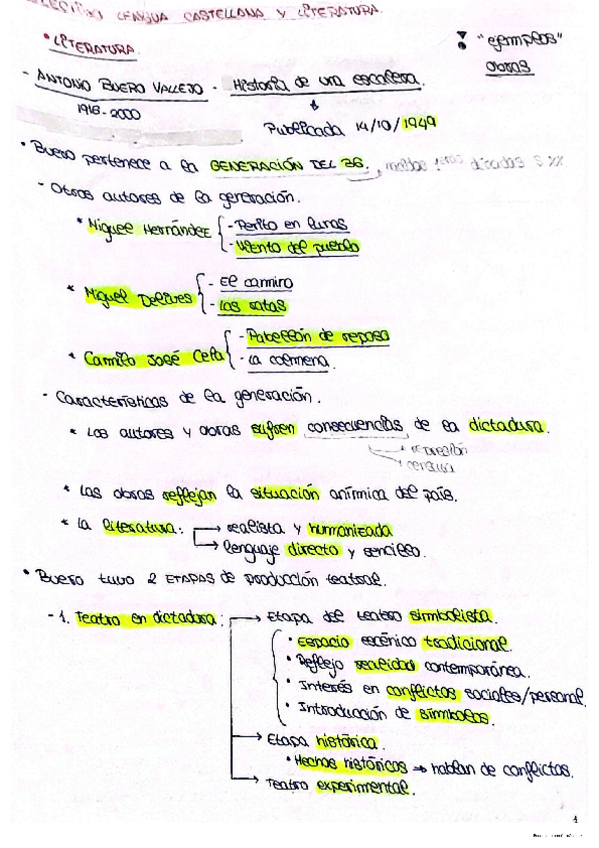 LENGUA CASTELLANA Y LITERATURA.
• LITERATURA.
"ejemplos"
obras
- ANTONIO BUERO VALLEJO - Historia de una escalera.
1916-2000
Publicada 14/10/1949
• Buero pertenece a la GENERACIÓN DEL 36,
- Otros autores de la generación.
* Miguel Hernández { - Perito en lunas
- Viento del pueblo
* Miguel Delibes { - El camino
- Las ratas
* Camilo José Cela { - Pabellón de reposo
- La colmena.
- Características de la generación.
* Los autores y obras sufren consecuencias de la dictadura.
→ represión
→ censura
* Las obras reflejan la situación anímica del país.
* La literatura: → realista y humanizada
→ lenguaje directo y sencillo.
• Buero tuvo 2 ETAPAS de producción teatral.
- 1. Teatro en dictadura: → Etapa del teatro simbolista.
• Espacio escénico tradicional.
• Reflejo realidad contemporánea.
• Interés en conflictos sociales/personal.
• Introducción de símbolos.
→ Etapa histórica.
• Hechos históricos → hablan de conflictos.
→ Teatro experimental.
1